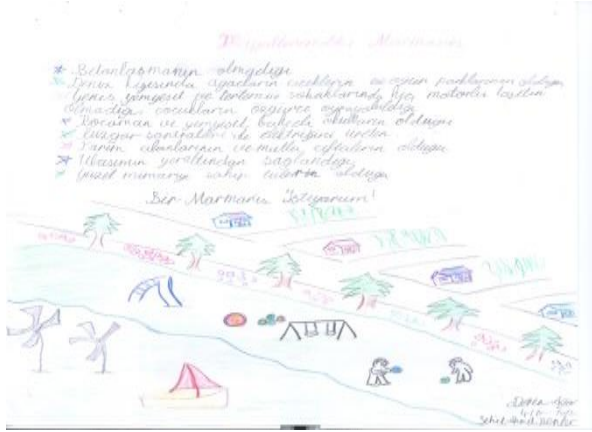 * Betonlaşmanın olmadığı
* Deniz kıyısında ağaçların çiçeklerin ve oyun parklarının olduğu
Geniş yemyeşil ve tertemiz sokaklarında hiç motorlu taşıtın
olmadığı çocukların özgürce oynayabildiği
* Kocaman ve yemyeşil bahçeli okulların olduğu
* Rüzgar santralleri ile elektriğini üreten
* Tarım alanlarının ve mutlu çiftçilerin olduğu
* Ulaşımın yeraltından sağlandığı
* Güzel mimariye sahip evlerin olduğu
Bir Marmaris İstiyorum!